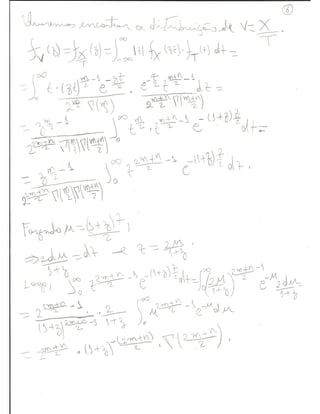 ⑥
Queremos encontrar a distribuição de V = X/T.
f_V(z) = f_{X/T}(z) = ∫_0^∞ |t| f_X(zt) · f_T(t) dt =
= ∫_0^∞ t · (zt)^{m/2 - 1} e^{-zt/2} / (2^{m/2} Γ(m/2)) · e^{-t/2} t^{(m+n)/2 - 1} / (2^{(m+n)/2} Γ((m+n)/2)) dt =
= z^{m/2 - 1} / (2^{(2m+n)/2} Γ(m/2) Γ((m+n)/2)) ∫_0^∞ t^{m/2} · t^{(m+n)/2 - 1} e^{-(1+z) t/2} dt =
= z^{m/2 - 1} / (2^{(2m+n)/2} Γ(m/2) Γ((m+n)/2)) ∫_0^∞ t^{(2m+n)/2 - 1} e^{-(1+z) t/2} dt.
Fazendo u = (1+z) t/2,
⇒ 2du/(1+z) = dt e t = 2u/(1+z).
Logo, ∫_0^∞ t^{(2m+n)/2 - 1} e^{-(1+z) t/2} dt = ∫_0^∞ (2u/(1+z))^{(2m+n)/2 - 1} e^{-u} 2du/(1+z) =
= 2^{(2m+n)/2 - 1} / (1+z)^{(2m+n)/2 - 1} · 2/(1+z) ∫_0^∞ u^{(2m+n)/2 - 1} e^{-u} du
= 2^{(2m+n)/2} · (1+z)^{-(2m+n)/2} · Γ((2m+n)/2).